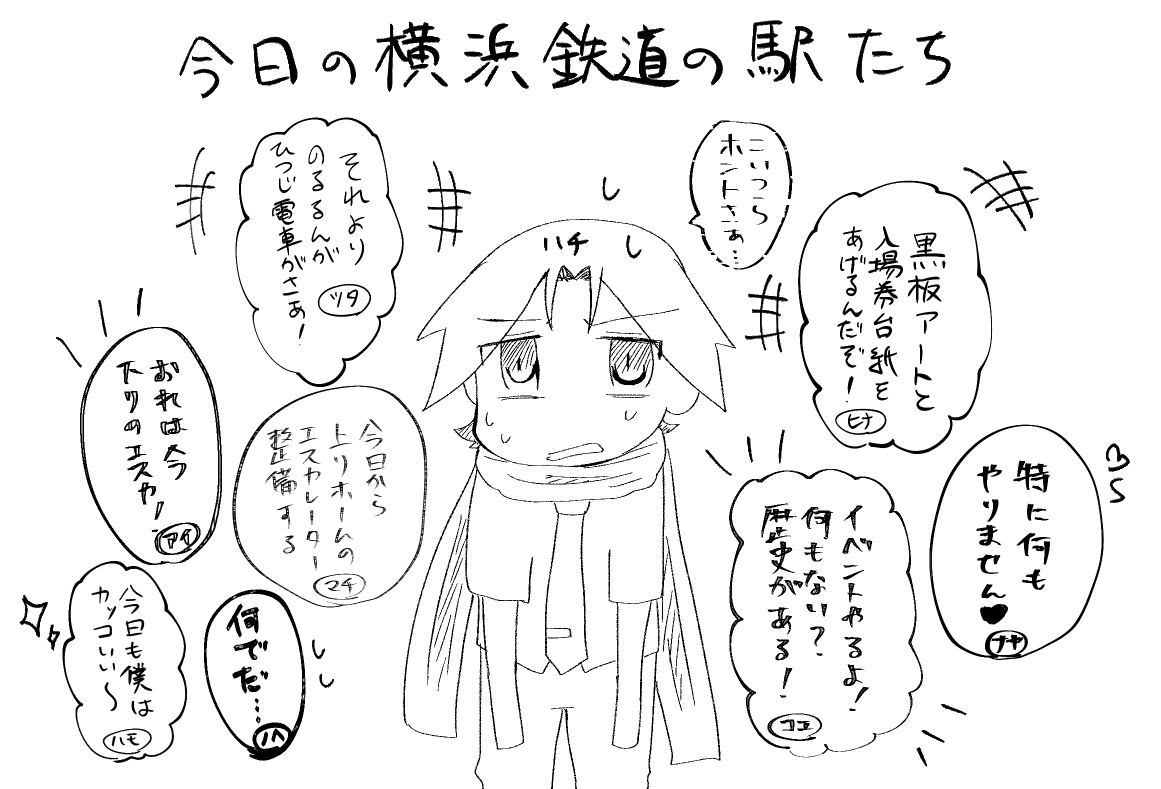 今日の横浜鉄道の駅たち
こいつら
ホントさぁ…
黒板アートと
入場券台紙を
あげるんだぞ!
ヒナ
それより
のるるんが
ひつじ電車がさぁ!
ツタ
ハチ
おれは今
下りのエスカ!
アイ
今日から
上りホームの
エスカレーター
整備する
マチ
特に何も
やりません♥
ナヤ
イベントやるよ!
何もない?
歴史がある!
コエ
今日も僕は
カッコいい〜
ハモ
何でだ…
ハヘ